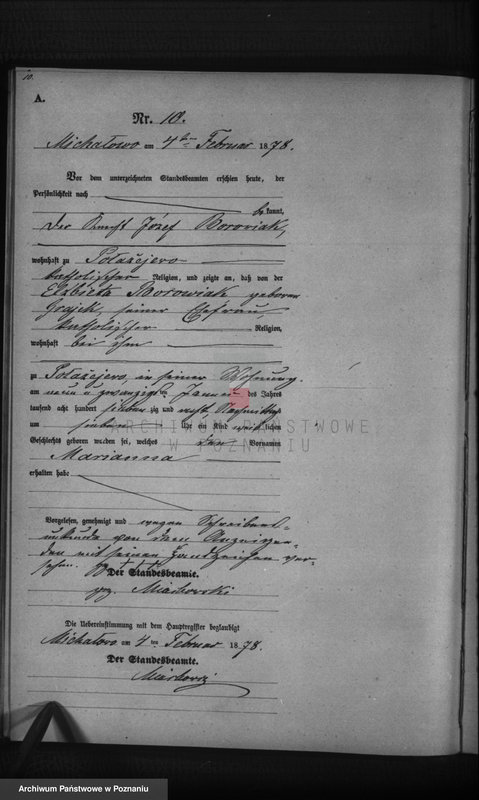 10.
A.
Nr. 10.
Michałowo am 4ten Februar 1878.
Vor dem unterzeichneten Standesbeamten erschien heute, der
Persönlichkeit nach
be kannt,
der Knecht Józef Borowiak,
wohnhaft zu Potażejewo
katholischer Religion, und zeigte an, daß von der
Elżbieta Borowiak geborene
Grajek, seiner Ehefrau,
katholischer Religion,
wohnhaft bei ihm
zu Potażejewo, in seiner Wohnung
am neun u zwanzigsten Januar des Jahres
tausend acht hundert siebenzig und acht Nachmittags
um sieben Uhr ein Kind weiblichen
Geschlechts geboren worden sei, welches den Vornamen
Marianna
erhalten habe
Vorgelesen, genehmigt und wegen Schreibens-
unkunde von dem Anzeigen-
den mit seinen Handzeichen ver-
sehen. +++
Der Standesbeamte.
gez. Miaskowski
Die Uebereinstimmung mit dem Hauptregister beglaubigt
Michałowo am 4ten Februar 1878.
Der Standesbeamte.
ARCHIWUM PAŃSTWOWE
W POZNANIU
Archiwum Państwowe w Poznaniu